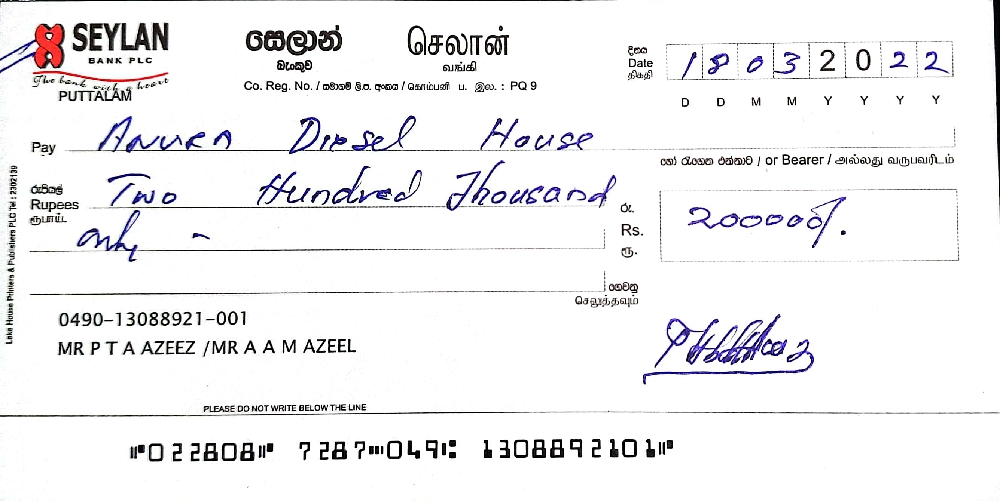 SEYLAN
BANK PLC
The bank with a heart
PUTTALAM
සෙලාන්
බැංකුව
செலான்
வங்கி
Co. Reg. No. / සමාගම් ලි.ප. අංකය / கொம்பனி ப. இல. : PQ 9
දිනය
Date
திகதி
18032022
D D M M Y Y Y Y
Pay Anura Diesel House
හෝ රැගෙන එන්නාට / or Bearer / அல்லது வருபவரிடம்
රුපියල්
Rupees Two Hundred Thousand
ரூபாய்
only -
රු.
Rs. 200000/.
ரூ.
ගෙවනු
செலுத்தவும்
0490-13088921-001
MR P T A AZEEZ /MR A A M AZEEL
Lake House Printers & Publishers PLC
PLEASE DO NOT WRITE BELOW THE LINE
⑈022808⑈ 7287⑉049⑆ 1308892101⑈